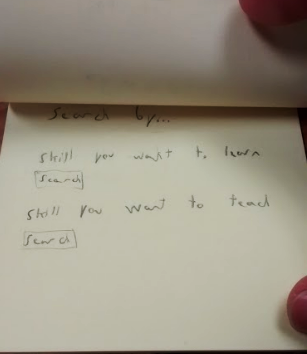 Search by...
Skill you want to learn
Search
Skill you want to teach
Search